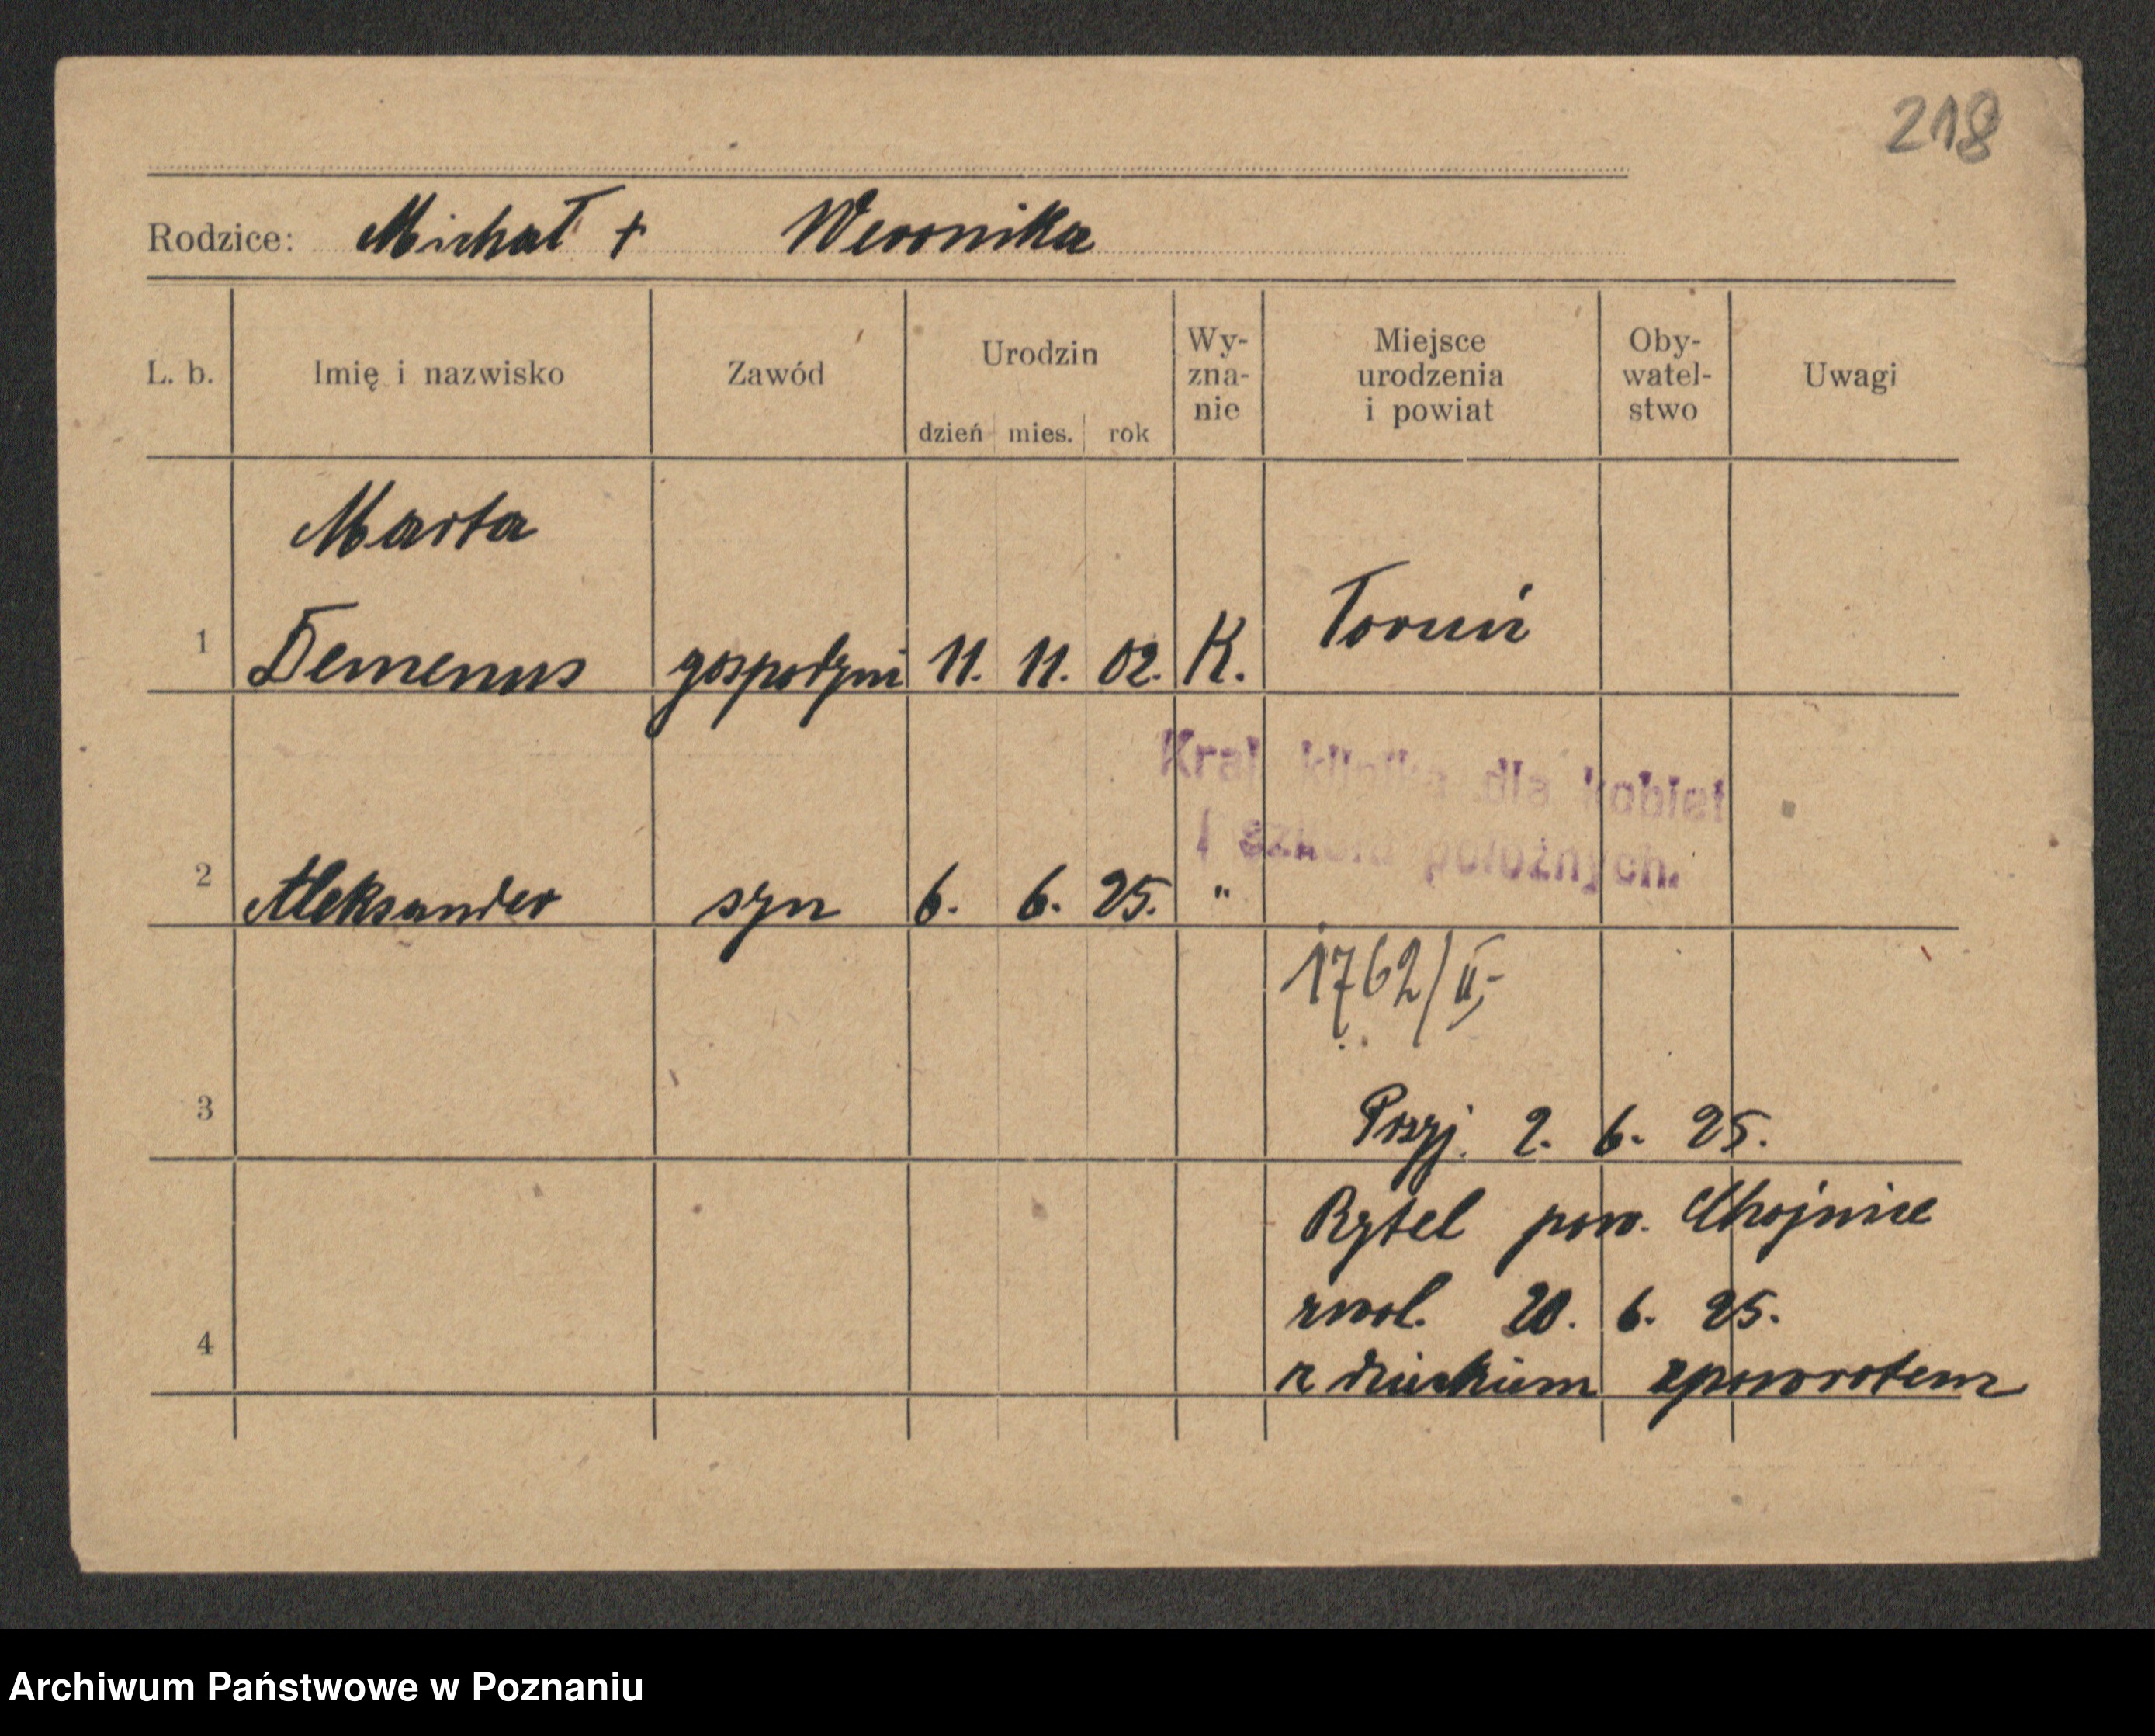 218
Rodzice: Michał + Weronika
L. b. Imię i nazwisko Zawód Urodzin dzień mies. rok Wy-zna-nie Miejsce urodzenia i powiat Oby-watel-stwo Uwagi
Marta
1 Demenus gospodyni 11. 11. 02. K. Toruń
Kraj. klinika dla kobiet
i szkoła położnych.
2 Aleksander syn 6. 6. 25. "
1762/II,-
3 Przyj. 2. 6. 25.
Rytel pow. Chojnice
zwol. 20. 6. 25.
4 z dzieckiem zpowrotem
Archiwum Państwowe w Poznaniu